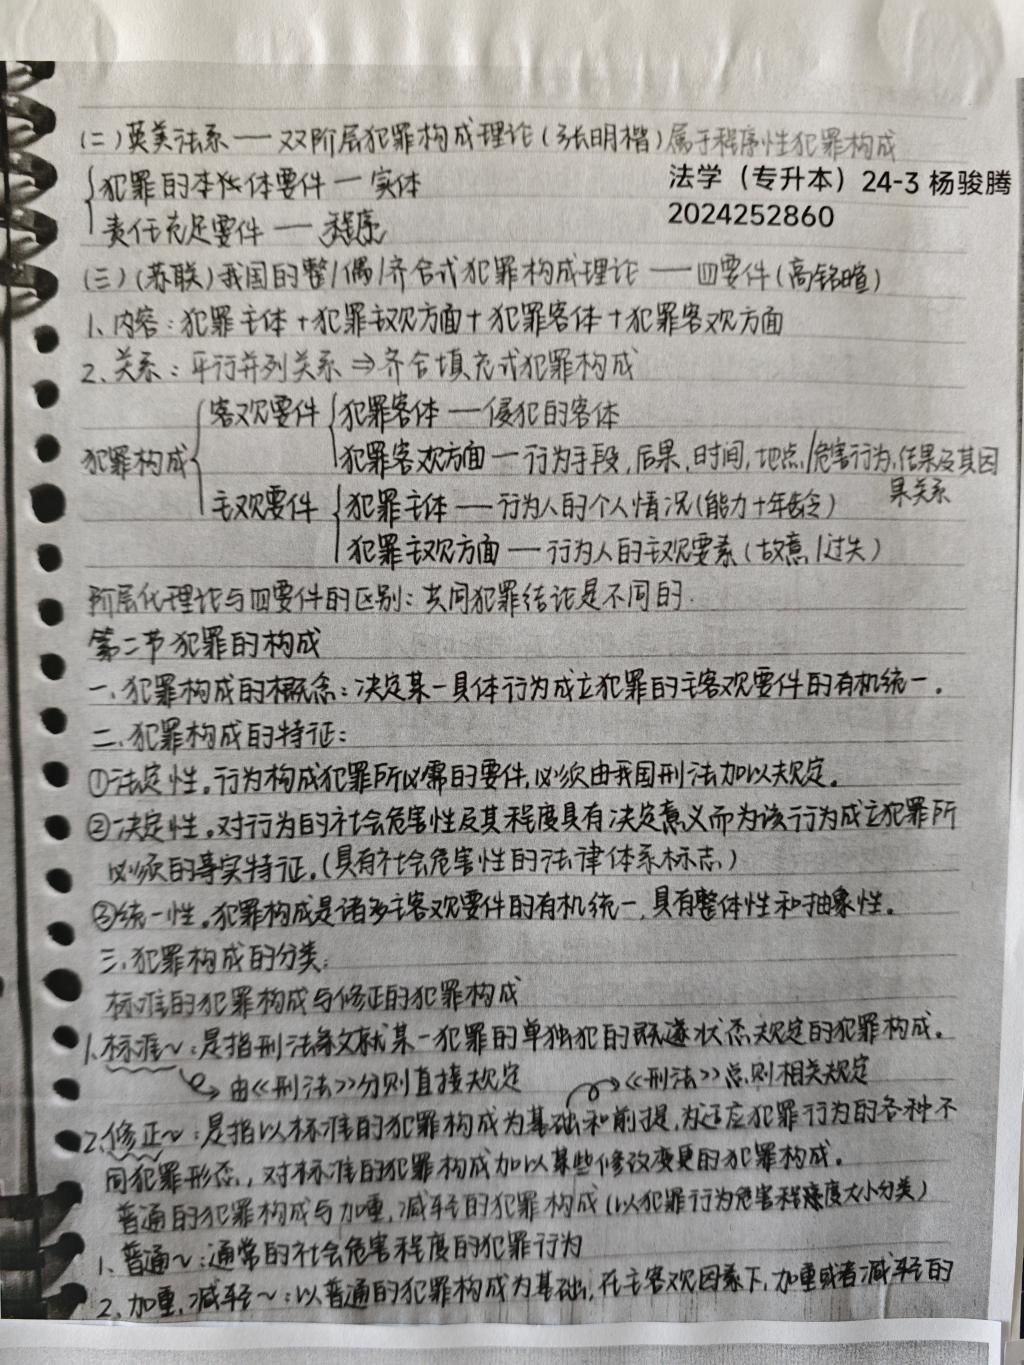 (二)英美法系——双阶层犯罪构成理论(张明楷)属于程序性犯罪构成
犯罪的本体要件—实体
法学（专升本）24-3 杨骏腾
责任充足要件——程序
2024252860
(三)(苏联)我国的整/偶/齐合式犯罪构成理论——四要件(高铭暄)
1、内容:犯罪主体+犯罪主观方面+犯罪客体+犯罪客观方面
2、关系:平行并列关系⇒齐合填充式犯罪构成
客观要件 犯罪客体—侵犯的客体
犯罪构成 犯罪客观方面—行为手段,后果,时间,地点/危害行为,结果及其因
果关系
主观要件 犯罪主体—行为人的个人情况(能力+年龄)
犯罪主观方面—行为人的主观要素(故意/过失)
阶层化理论与四要件的区别:共同犯罪结论是不同的.
第二节犯罪的构成
一.犯罪构成的概念:决定某一具体行为成立犯罪的主客观要件的有机统一.
二.犯罪构成的特征:
①法定性。行为构成犯罪所必需的要件,必须由我国刑法加以规定.
②决定性。对行为的社会危害性及其程度具有决定意义而为该行为成立犯罪所
必须的事实特征.(具有社会危害性的法律体系标志)
③统一性。犯罪构成是诸多主客观要件的有机统一,具有整体性和抽象性.
三.犯罪构成的分类:
标准的犯罪构成与修正的犯罪构成
1.标准~:是指刑法条文就某一犯罪的单独犯的既遂状态规定的犯罪构成.
由《刑法》分则直接规定 《刑法》总则相关规定
2.修正~:是指以标准的犯罪构成为基础和前提,为适应犯罪行为的各种不
同犯罪形态,对标准的犯罪构成加以某些修改变更的犯罪构成.
普通的犯罪构成与加重,减轻的犯罪构成(以犯罪行为危害程度大小分类)
1、普通~:通常的社会危害程度的犯罪行为
2.加重,减轻~:以普通的犯罪构成为基础,在主客观因素下,加重或者减轻的